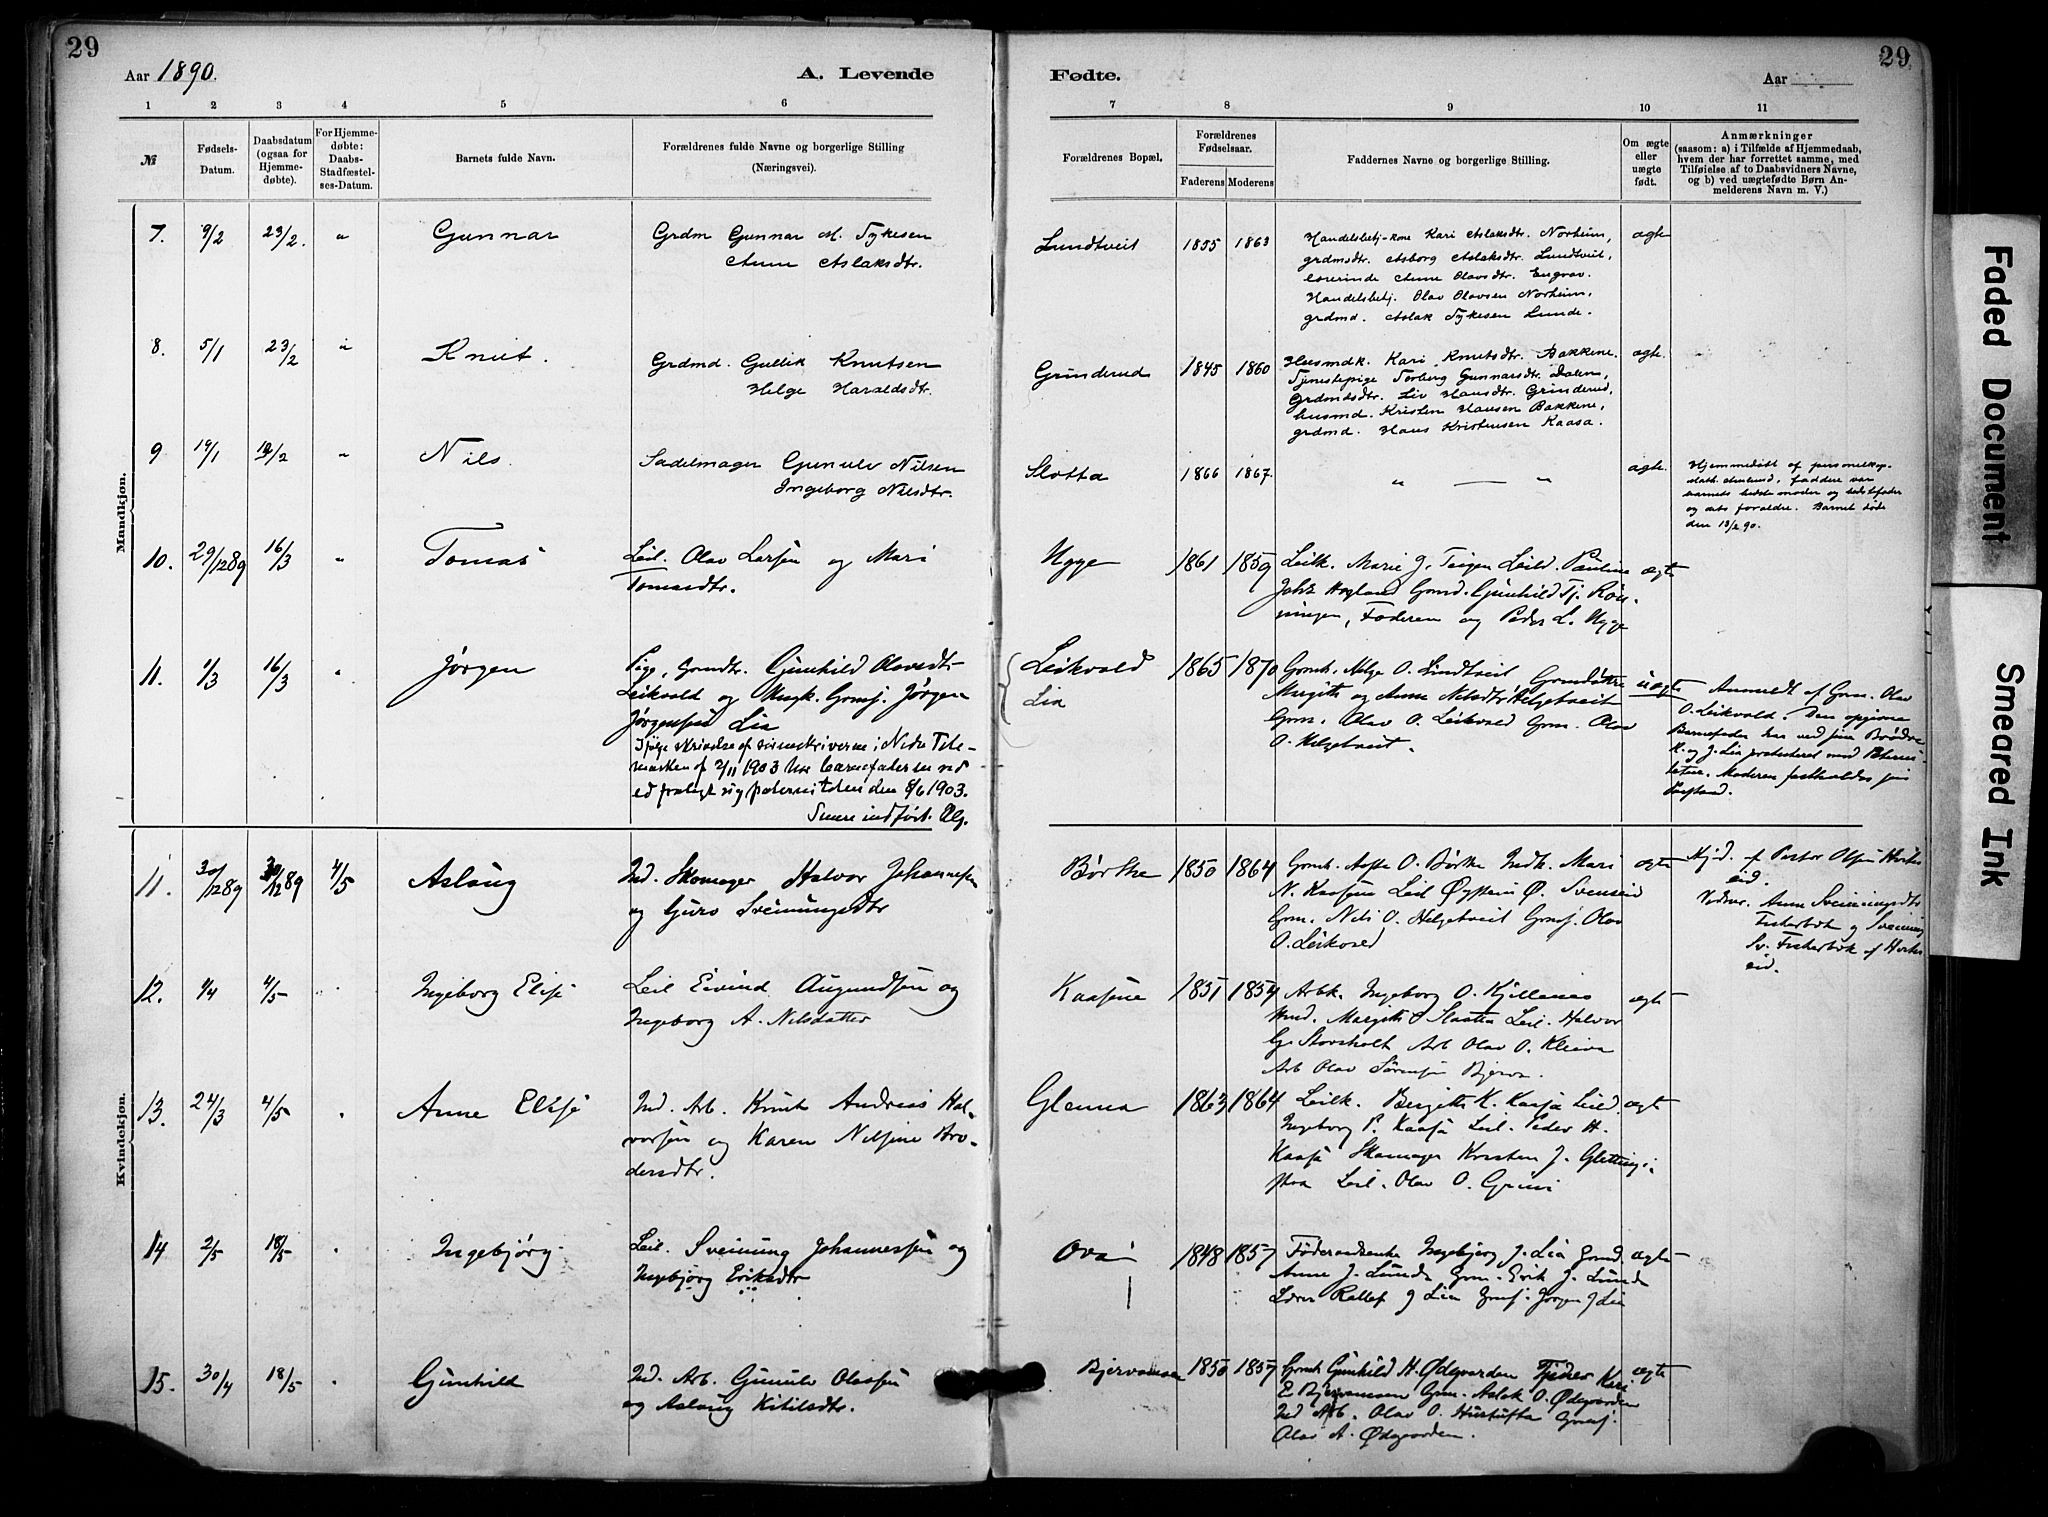 29
29
Aar 1890.
A. Levende
Fødte.
Aar
1 2 3 4 5 6 7 8 9 10 11
№
Fødsels-
Datum.
Daabsdatum
(ogsaa for
Hjemme-
døbte).
For Hjemme-
døbte:
Daabs-
Stadfæstel-
ses-Datum.
Barnets fulde Navn.
Forældrenes fulde Navne og borgerlige Stilling
(Næringsvei).
Forældrenes Bopæl.
Forældrenes
Fødselsaar.
Faderens Moderens
Faddernes Navne og borgerlige Stilling.
Om ægte
eller
uægte
født.
Anmærkninger
(saasom: a) i Tilfælde af Hjemmedaab,
hvem der har forrettet samme, med
Tilføielse af to Daabsvidners Navne,
og b) ved uægtefødte Børn An-
melderens Navn m. V.)
Mandkjøn.
7. 9/2 23/2. " Gunnar
Grdm Gunnar M. Tykesen
Anne Aslaksdtr.
Lundtveit 1855 1863
Handelsbetj-kone Kari Aslaksdtr. Norheim,
grdmsdtr. Asborg Aslaksdtr. Lundtveit,
lærerinde Anne Olavsdtr. Engrav.
Handelsbetj. Olav Olavsen Norheim,
grdmd. Aslak Tykesen Lunde.
ægte
8. 5/1 23/2 " Knut.
Grdmd. Gullik Knutsen
Helge Haraldsdtr.
Grinderud 1845 1860
Husmdk. Kari Knutsdtr. Bakkene.
Tjenestepige Torberg Gunnarsdtr. Dalen,
Grdmdsdtr. Liv Hansdtr. Grinderud,
husmd. Kristen Hansen Bakkene,
grdmd. Hans Kristensen Kaasa.
ægte.
9 19/1 19/2 " Nils.
Sadelmager Gunulv Nilsen
Ingeborg Nilsdtr.
Slotta 1866 1867.
" — "
ægte.
Hjemmedøbt af personelkap-
faddere var
barnets bedstemoder og bedstefader
og dets forældre. Barnet døde
den 13/2 90.
10. 29/12 89 16/3 " Tomas
Leil. Olav Larsen og Mari
Tomasdtr.
Hygge 1861 1859
Leilk. Marie J. Teigen Leild. Pauline
Hogland Gmd. Gunhild Tj. Røn-
ningen, Faderen og Peder L. Hygge
ægte
11. 1/3 16/3 " Jørgen
Pig. Grmdtr. Gunhild Olavsdtr
Leikvold og Ungk. Grmsj. Jørgen
Jørgensen Lia
Ifølge skrivelse af sorenskriveren i Nedre Tele-
marken af 2/11 1903 har barnefaderen ved
ed fralagt sig paterniteten den 8/6 1903.
Senere indført.
Leikvold
Lia
1865 1870
Grmk. Helge O. Lundtveit Grmdøttre
Margith og Anne Nilsdtr Helgetveit
Grm. Olav O. Leikvold Grm. Olav
O. Helgetveit.
uægte
Anmeldt af Grm. Olav
O. Leikvold. Den opgivne
Barnefader har ved sine Brødre
K. og J. Lia protesteret mod Paterni-
teten. Moderen fastholder sin
Paastand.
Kvindekjøn.
11. 30/12 89 30/12 89 4/5 Aslaug
Ind. Skomager Halvor Johannesen
og Guro Sveinungsdtr
Børthe 1850 1864
Grmk. Aaste O. Børthe Indk. Mari
N. Kaasene Leil Øystein Ø. Svenseid
Grm. Nils O. Helgetveit Grmsj. Olav
O. Leikvold
ægte
Hjd. af Pastor Olsen Herkes
eid.
Vidner. Anne Sveinungsdtr
Fiskerbæk og Sveinung
Sv. Fiskerbæk af Herkes
eid.
12. 1/4 4/5 " Ingeborg Elise
Leil Eivind Augundsen og
Ingeborg A. Nilsdatter
Kaasene 1851 1854
Arbk. Ingeborg O. Kjillenes
Margith Slaatta Leil. Halvor
G. Storsholt Arb Olav O. Kleiva
Arb Olav Sørensen Bjerva.
ægte
13. 24/3 4/5 " Anne Elise
Ind. Arb. Knut Andreas Hal-
vorsen og Karen Nilsine An-
dersdtr.
Glenna 1863 1864
Leilk. Bergith K. Kaasa Leild.
Ingeborg P. Kaasa Leil. Peder H.
Kaasa Skomager Kristen J. Glitting-
Leil. Olav O. Grini
ægte
14 2/5 18/5 " Ingebjørg
Leil. Sveinung Johannessen og
Ingebjørg Eriksdtr
Ova 1848 1857
Føderaadsenke Ingebjørg J. Lia Grmd.
Anne J. Lunde Grm. Erik J. Lunde
Lærer Rollef J Lia Grmsj. Jørgen J Lia
ægte
15. 30/4 18/5 " Gunhild
Ind. Arb. Gunulv Olavsen
og Aslaug Kittilsdtr.
Bjervamoen 1850 1857
Grmk Gunhild H. Ødegaarden Tjener Kari
E Bjervamoen Grm. Aslak O. Ødegaarden
Ind Arb. Olav O. Hustufta Grmsj.
Olav A. Ødegaarden.
ægte
Faded Document
Smeared Ink